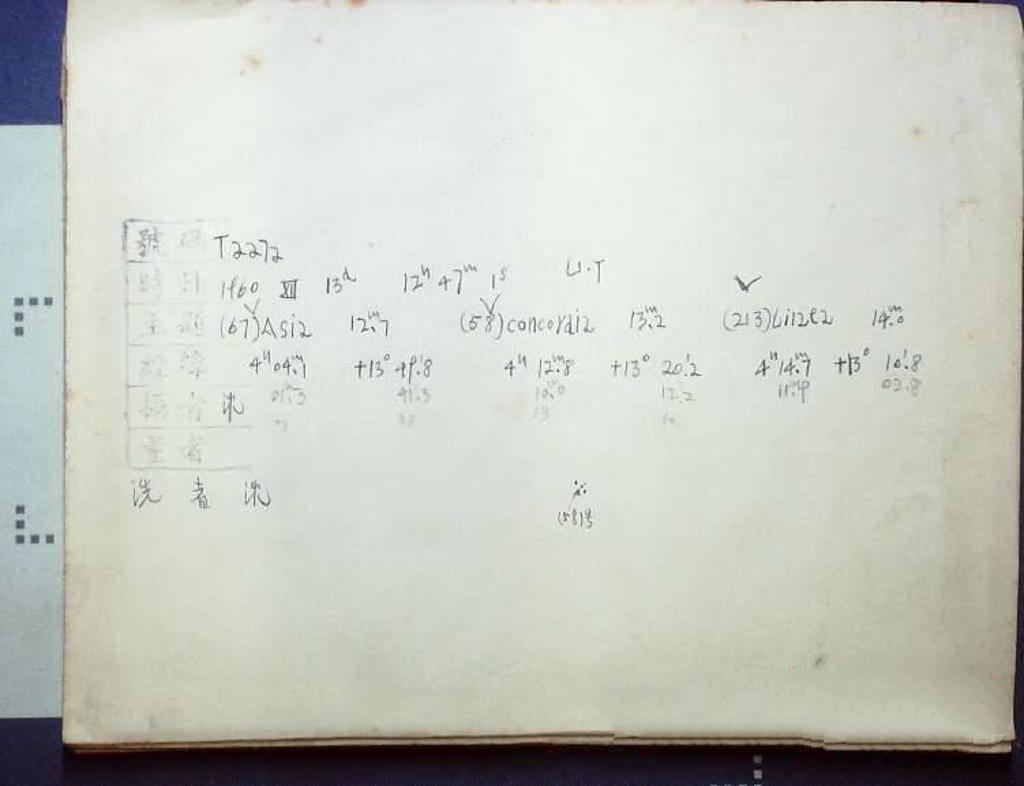 號碼 T2272
時日 1960 XII 13ᵈ 12ʰ 47ᵐ 1ˢ U.T
主題 (67)Asia 12ᵐ.7 (58)concordia 13ᵐ.2 (213)Lilaea 14ᵐ.0
4ʰ 04ᵐ.1 +13° 49'.8 4ʰ 12ᵐ.8 +13° 20'.2 4ʰ 14ᵐ.7 +13° 10'.8
01ᵐ.3 41'.3 10ᵐ.0 12'.2 11ᵐ.9 02'.8
攝者
13 10
量者
洗者
(58)